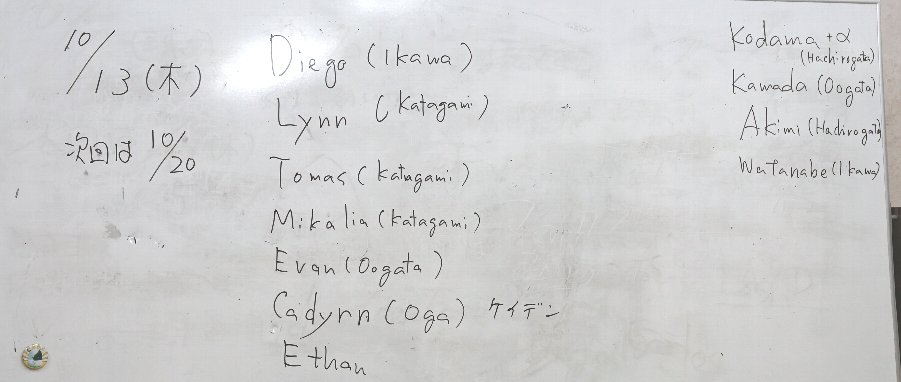 10/13(木)
次回は 10/20
Diego (Ikawa)
Lynn (Katagami)
Tomas (Katagami)
Mikalia (Katagami)
Evan (Oogata)
Cadynn (Oga) ケイデン
Ethan
Kodama +α
(Hachirogata)
Kamada (Oogata)
Akimi (Hachirogata)
Watanabe (Ikawa)